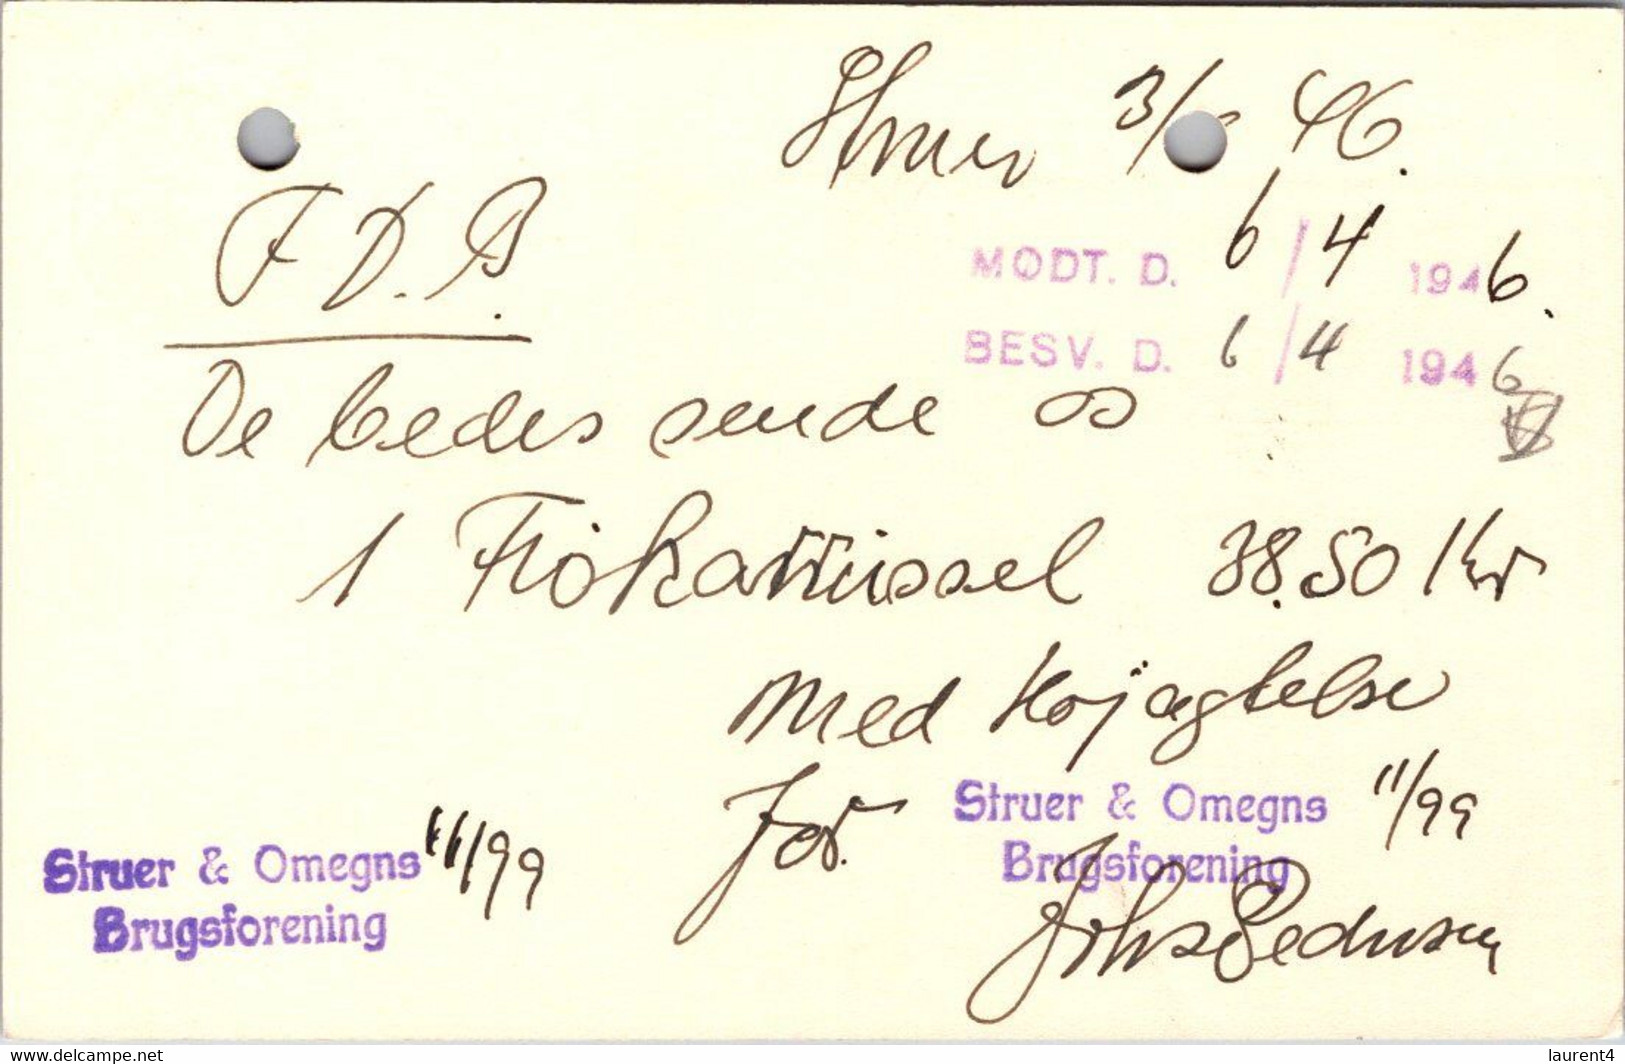 Struer 3/4 46.
F.D.B.
MODT. D. 6/4 1946.
BESV. D. 6/4 1946
De bedes sende os
1 38.50 Kr
Med Højagtelse
for. Struer & Omegns 11/99
Brugsforening
Johs Pedersen
Struer & Omegns 11/99
Brugsforening
www.delcampe.net
laurent4